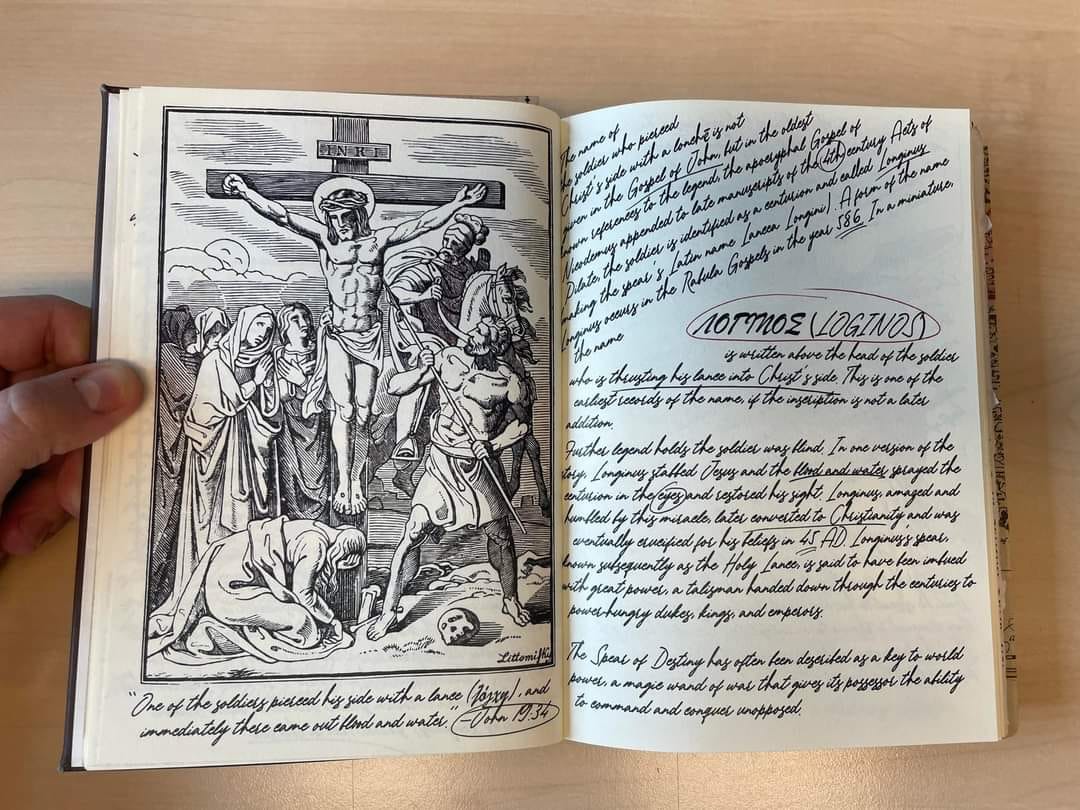 INRI
“One of the soldiers pierced his side with a lance (λόγχη), and
immediately there came out blood and water.” –John 19:34
The name of
the soldier who pierced
Christ's side with a lonchē is not
given in the Gospel of John, but in the oldest
known references to the legend, the apocryphal Gospel of
Nicodemus appended to late manuscripts of the 4th century Acts of
Pilate, the soldier is identified as a centurion and called Longinus
(making the spear's Latin name Lancea Longini). A form of the name
Longinus occurs in the Rabula Gospels in the year 586. In a miniature,
the name
ΛΟΓΙΝΟΣ (LOGINOS)
is written above the head of the soldier
who is thrusting his lance into Christ's side. This is one of the
earliest records of the name, if the inscription is not a later
addition.
Further legend holds the soldier was blind. In one version of the
story, Longinus stabbed Jesus and the blood and water sprayed the
centurion in the eyes and restored his sight. Longinus, amazed and
humbled by this miracle, later converted to Christianity and was
eventually crucified for his beliefs in 45 AD. Longinus's spear,
known subsequently as the Holy Lance, is said to have been imbued
with great power, a talisman handed down through the centuries to
power-hungry dukes, kings, and emperors.
The Spear of Destiny has often been described as a key to world
power, a magic wand of war that gives its possessor the ability
to command and conquer unopposed.